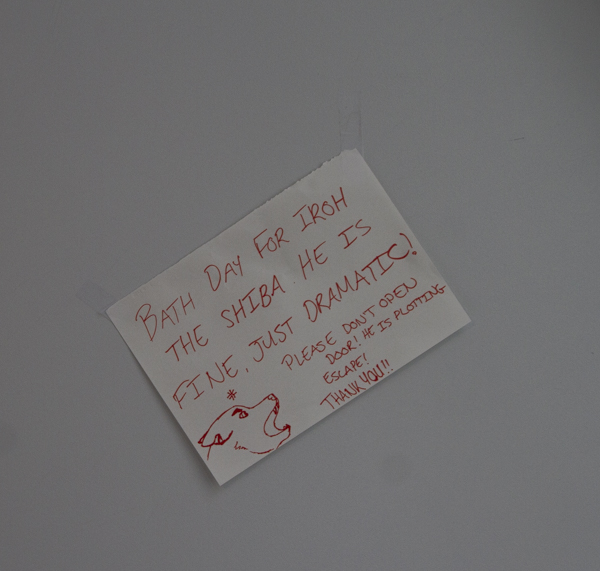 BATH DAY FOR IROH
THE SHIBA. HE IS
FINE, JUST DRAMATIC!
PLEASE DON'T OPEN
DOOR! HE IS PLOTTING
ESCAPE!
THANK YOU!!